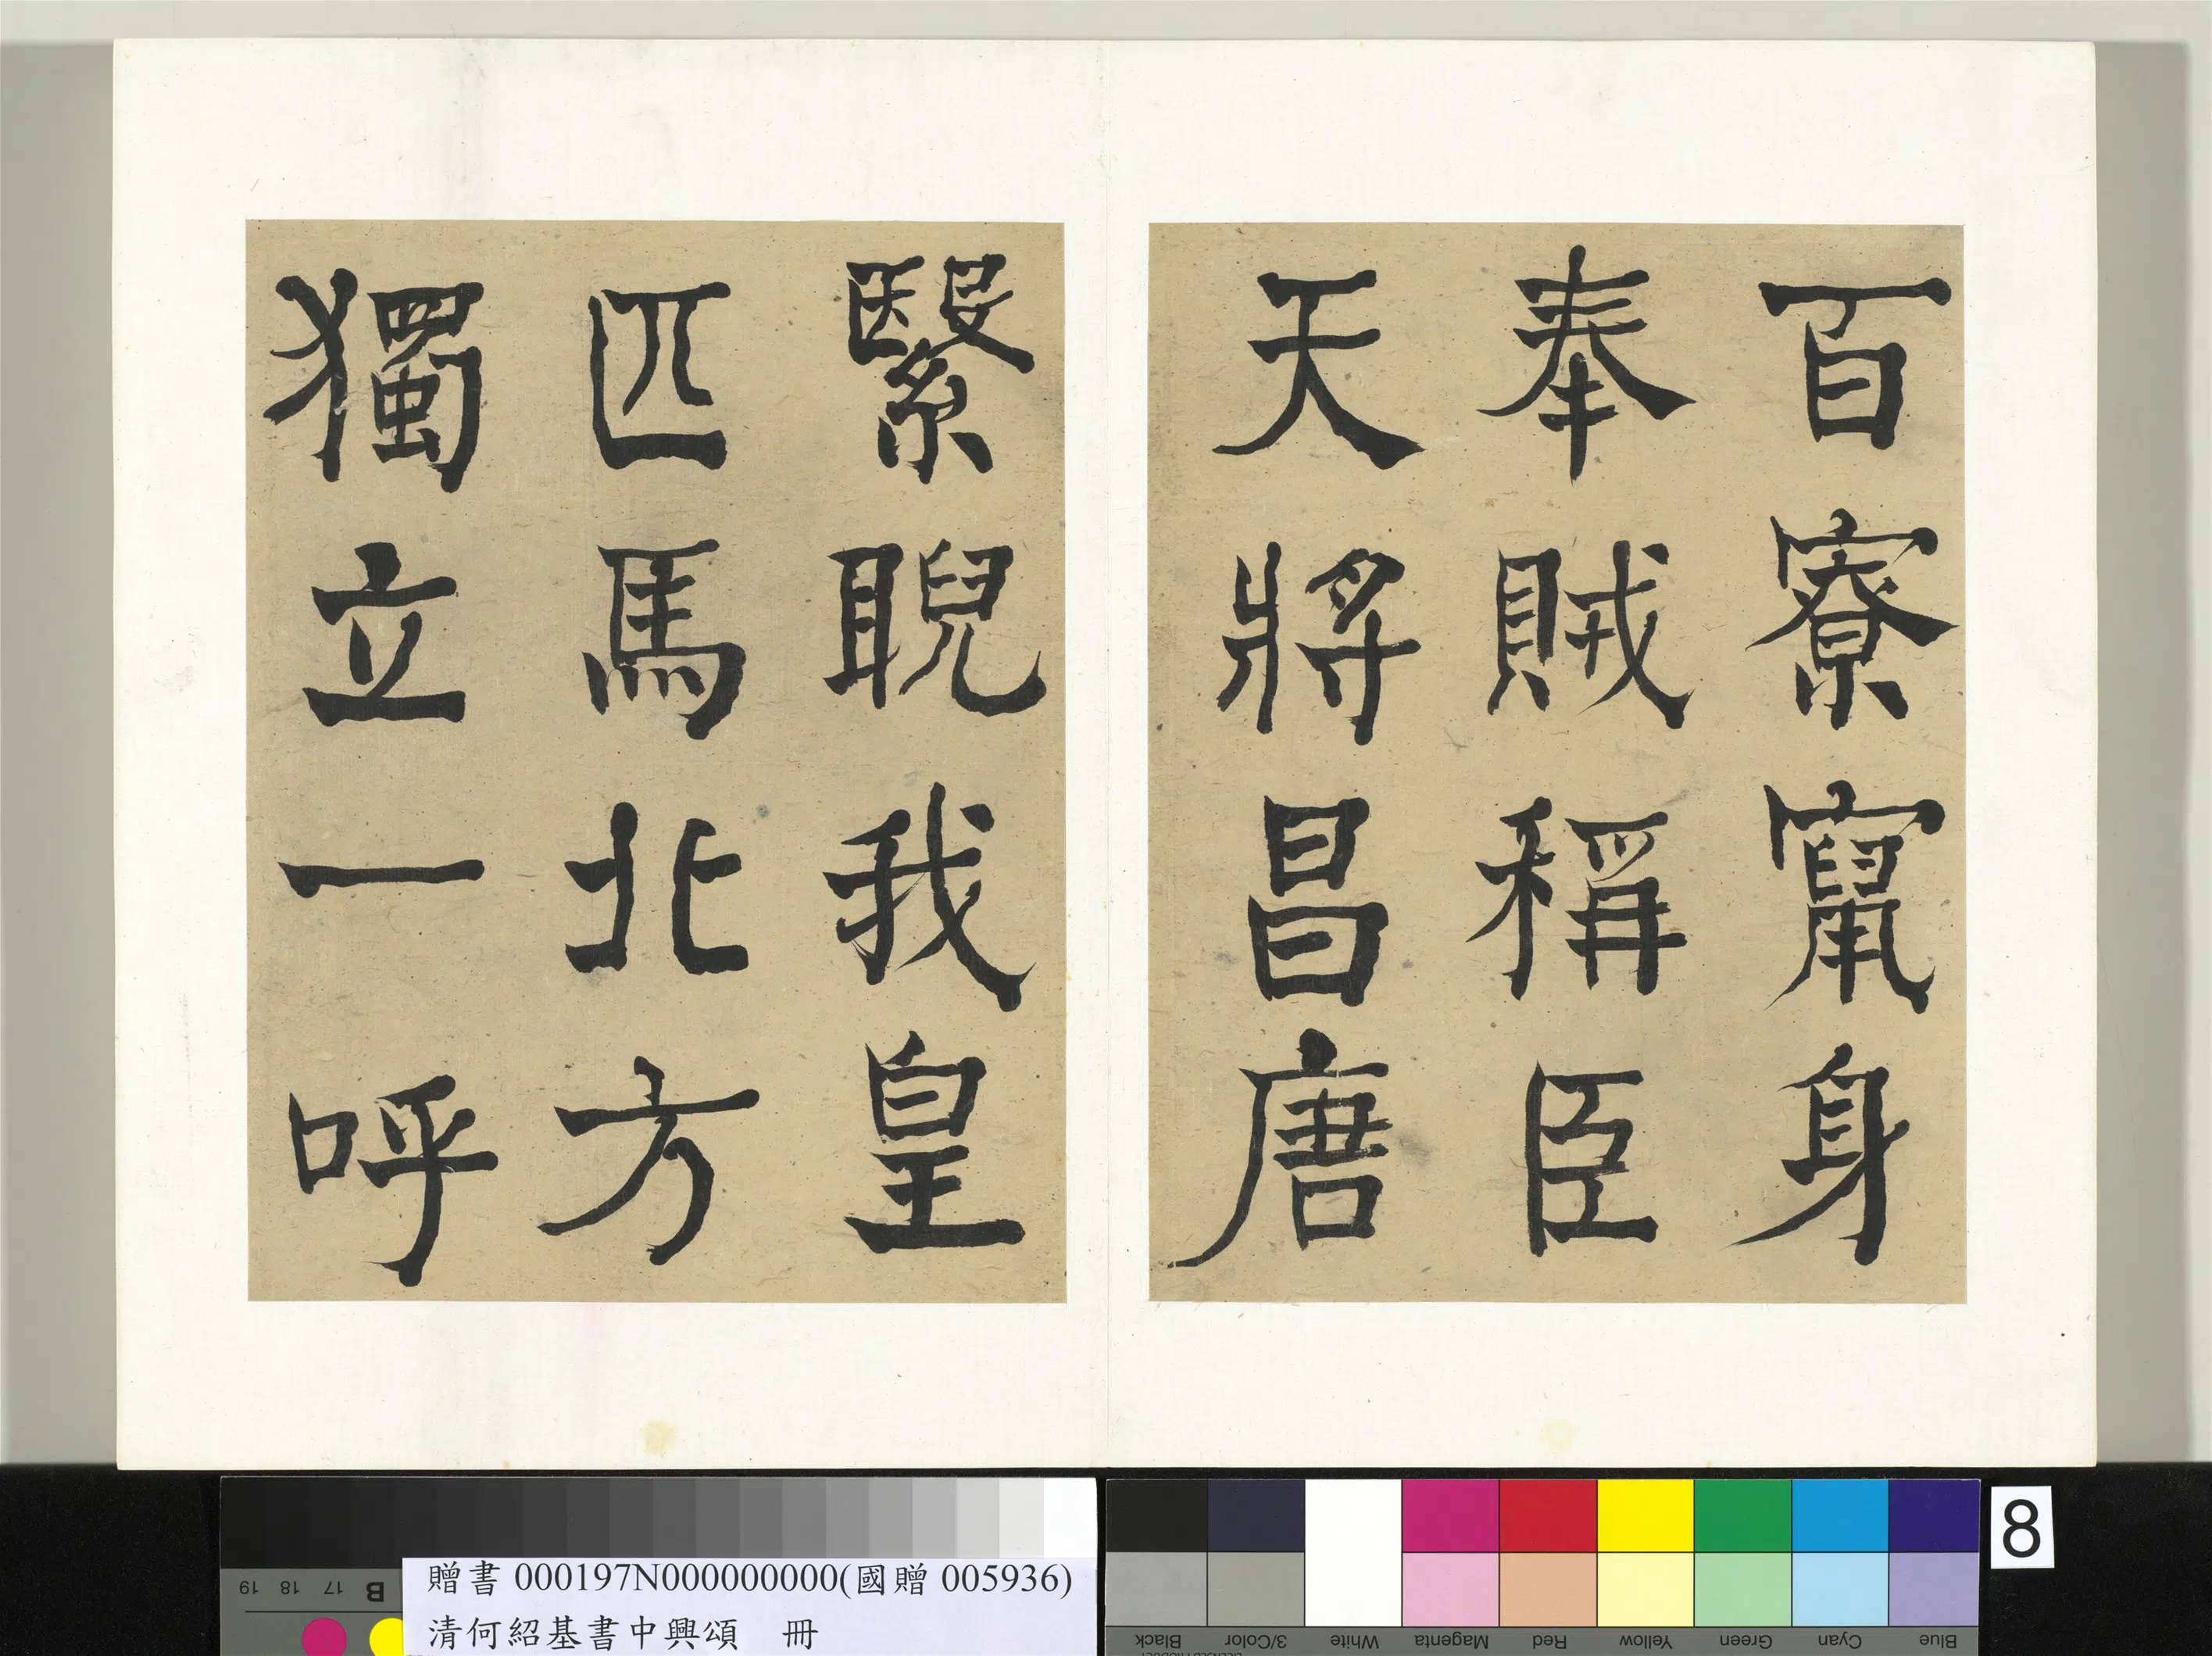 百寮竄身
奉賊稱臣
天將昌唐
繄睨我皇
匹馬北方
獨立一呼
8
贈書 000197N000000000(國贈 005936)
清何紹基書中興頌　冊
B 17 18 19
Blue Cyan Green Yellow Red Magenta White 3/Color Black